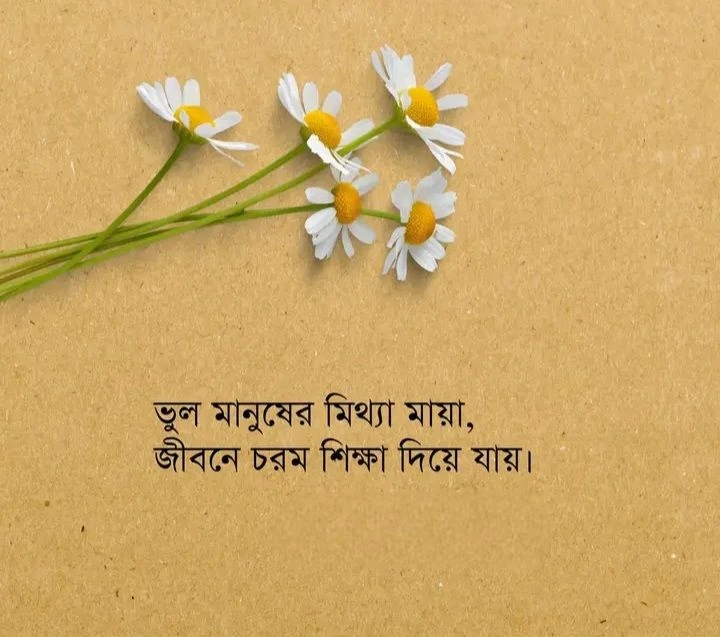 ভুল মানুষের মিথ্যা মায়া,
জীবনে চরম শিক্ষা দিয়ে যায়।